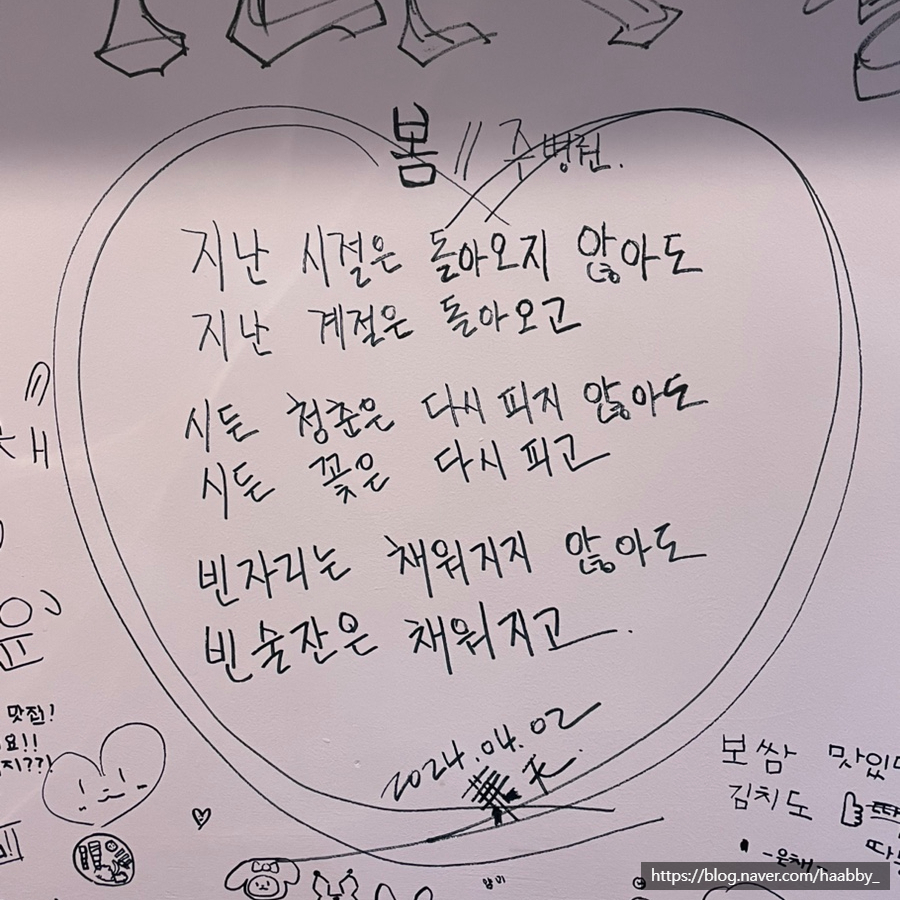 봄 // 주병권.
지난 시절은 돌아오지 않아도
지난 계절은 돌아오고
시든 청춘은 다시 피지 않아도
시든 꽃은 다시 피고
빈자리는 채워지지 않아도
빈 술잔은 채워지고.
2024.04.02
맛집!
요!!
지??!
보쌈 맛있
김치도
https://blog.naver.com/haabby_